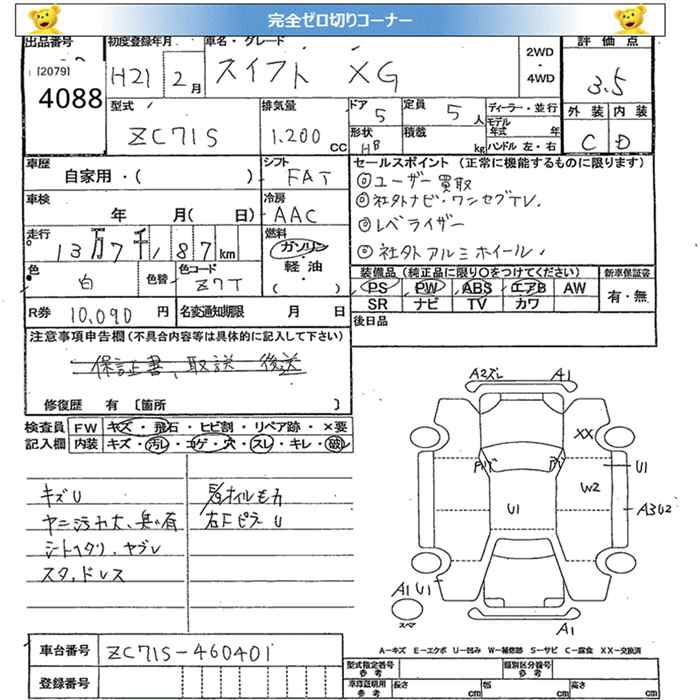 完全ゼロ切りコーナー
出品番号 初度登録年月 車名・グレード 2WD・4WD 評価点
[2079]
4088 H21 2月 スイフト XG 3.5
型式 排気量 ドア 定員 ディーラー・並行 外装 内装
ZC71S 1,200 CC 5 5人 モデル年式 年 C D
形状 HB 積載 kg ハンドル 左・右
車歴 シフト セールスポイント (正常に機能するものに限ります)
自家用・( ) FAT ◎ユーザー買取
車検 冷房 ◎社外ナビ・ワンセグTV.
年 月( 日) AAC ◎レベライザー
走行 燃料 ◎社外アルミホイール.
13万7千187km ガソリン
色 色替 色コード 軽・油
白 Z7T ( )
装備品 (純正品に限り〇をつけてください) 新車保証書
PS PW ABS エアB AW 有・無
SR ナビ TV カワ
R券 10,090円 名変通知期限 月 日 後日品
注意事項申告欄 (不具合内容等は具体的に記入して下さい)
保証書、取説 後送
修復歴 有 〔箇所 〕
検査員 FW キズ・飛石・ヒビ割・リペア跡・×要
記入欄 内装 キズ・汚レ・コゲ・穴・スレ・キレ・破レ
キズU
ヤニ汚れ大、臭い有
シートヘタリ、ヤブレ
スタッドレス
オイルモレ
右Fピラー U
A2ズレ A1
XX
U1
W2
U1
A3U2
A1 U1
スペア
A1
A-キズ E-エクボ U-凹み W-補修跡 S-サビ C-腐食 XX-交換済
車台番号 ZC71S-460401
登録番号
型式指定番号 参考 類別区分番号 参考
車庫証明用 参考 長さ cm 幅 cm 高さ cm